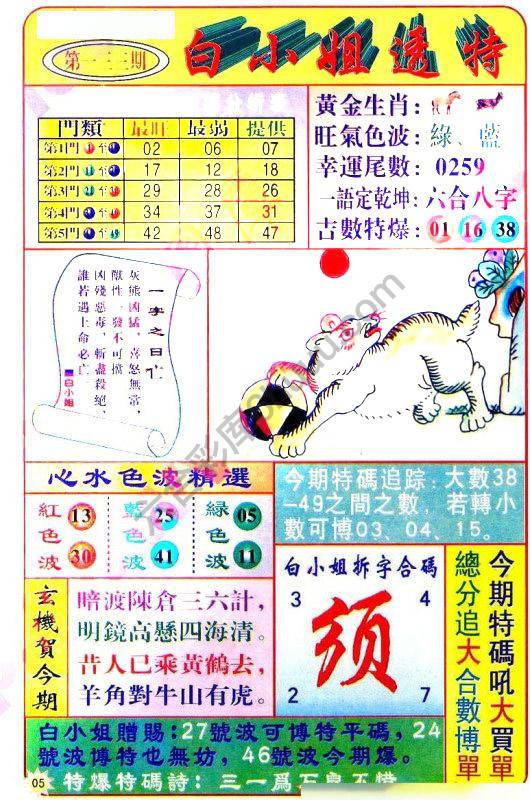 第一二三期
白小姐透特
門類 最旺 最弱 提供
第1門 1 至 02 06 07
第2門 至 17 12 18
第3門 至 29 28 26
第4門 至 34 37 31
第5門 至 49 42 48 47
黃金生肖：
旺氣色波：綠、藍
幸運尾數：0259
一語定乾坤：六合八字
吉數特爆：01 16 38
一字之曰亡
灰熊凶猛，喜怒無常，
獸性一發不可擋
凶殘惡毒，斬盡殺絕，
誰若遇上命必亡
■白小姐
心水色波精選
紅色波 13 30
藍色波 25 41
綠色波 05 11
今期特碼追踪：大數38
-49之間之數，若轉小
數可博03、04、15。
玄機賀今期
暗渡陳倉三六計，
明鏡高懸四海清。
昔人已乘黃鶴去，
羊角對牛山有虎。
白小姐拆字合碼
3 4
須
2 7
今期特碼吼大買單
總分追大合數博單
白小姐贈賜：27號波可博特平碼，24
號波博特也無妨，46號波今期爆。
05 特爆特碼詩：三一爲